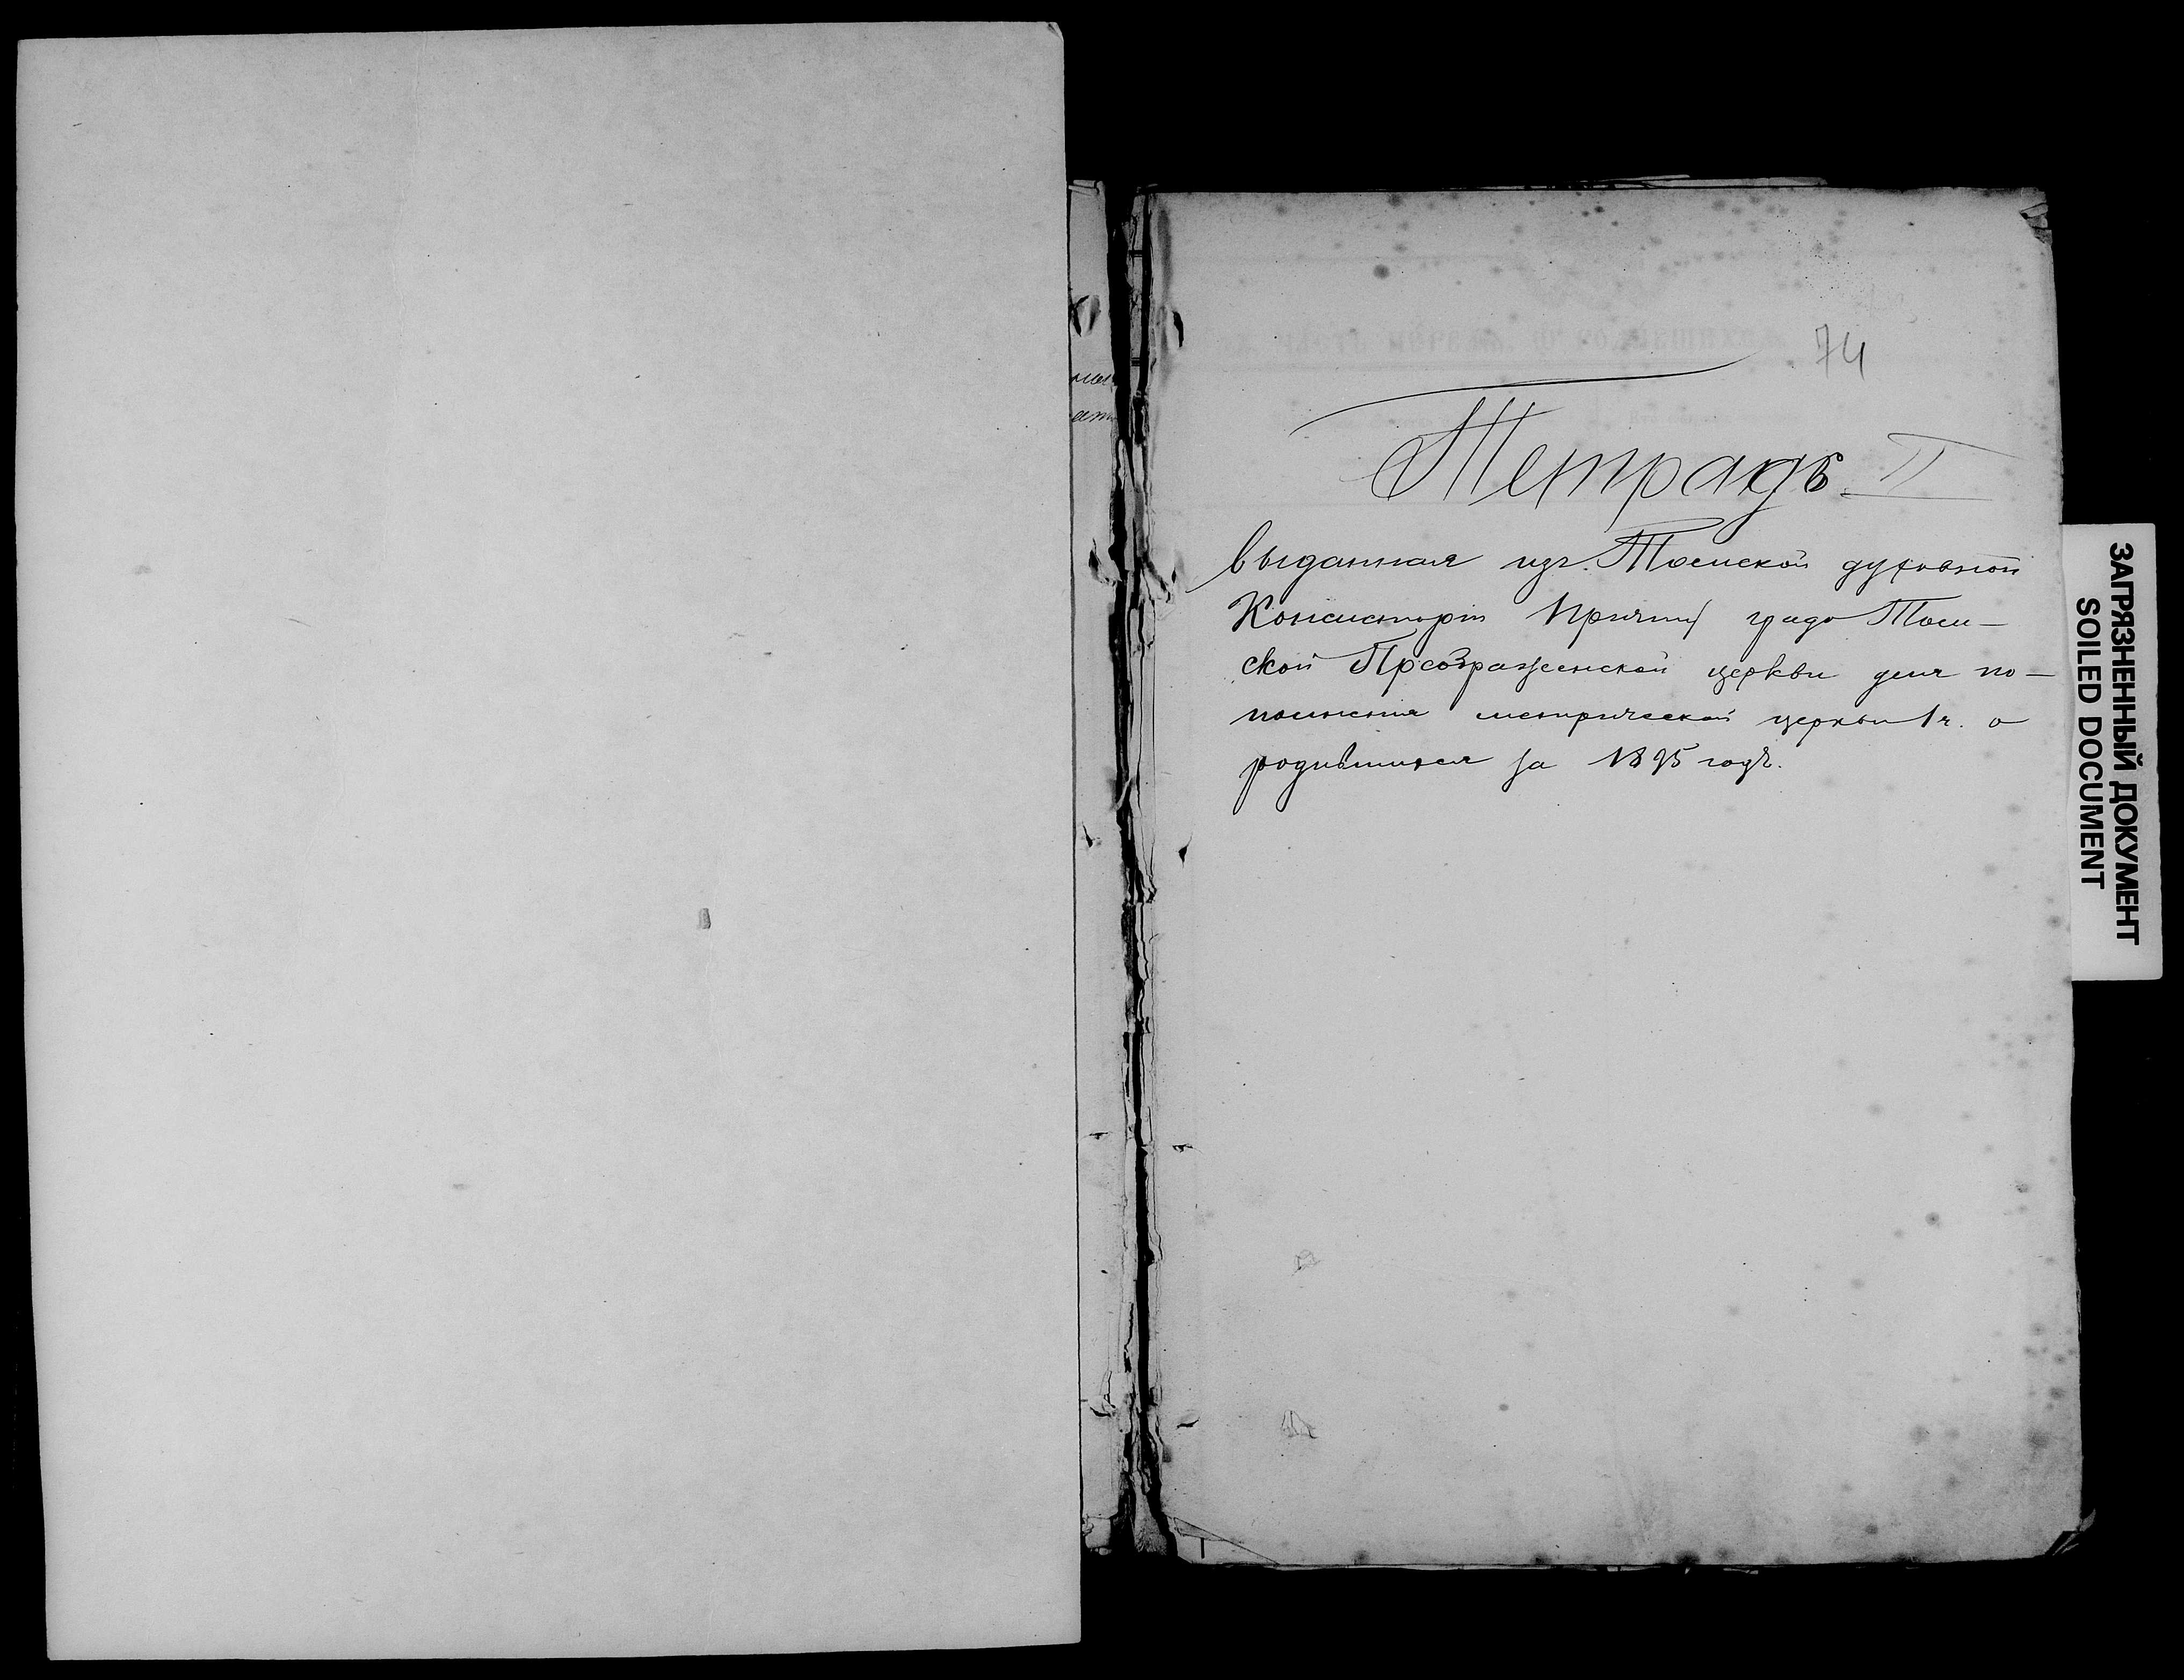 74
Тетрадь II
выданная изъ Томской духовной
Консисторіи Причту градо Том-
ской Преображенской церкви для по-
полненія метрической церкви 1 ч. о
родившихся за 1895 годъ.
ЗАГРЯЗНЕННЫЙ ДОКУМЕНТ
SOILED DOCUMENT